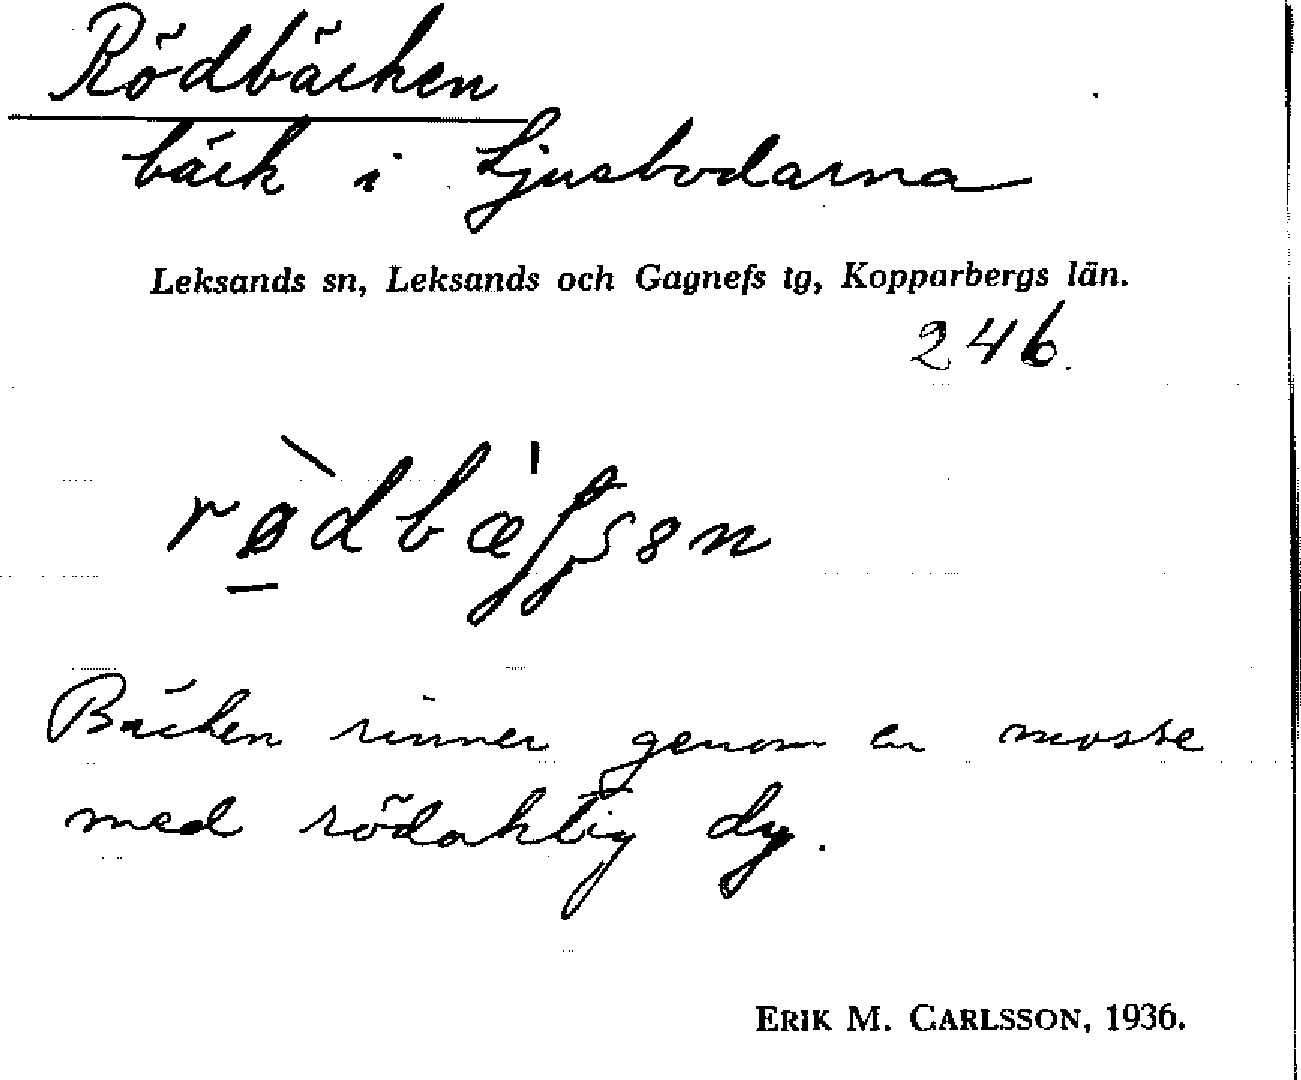 Rödbäcken
bäck i Ljusbodarna
Leksands sn, Leksands och Gagnefs tg, Kopparbergs län.
246.
Bäcken rinner genom en mosse
med rödaktig dy.
ERIK M. CARLSSON, 1936.